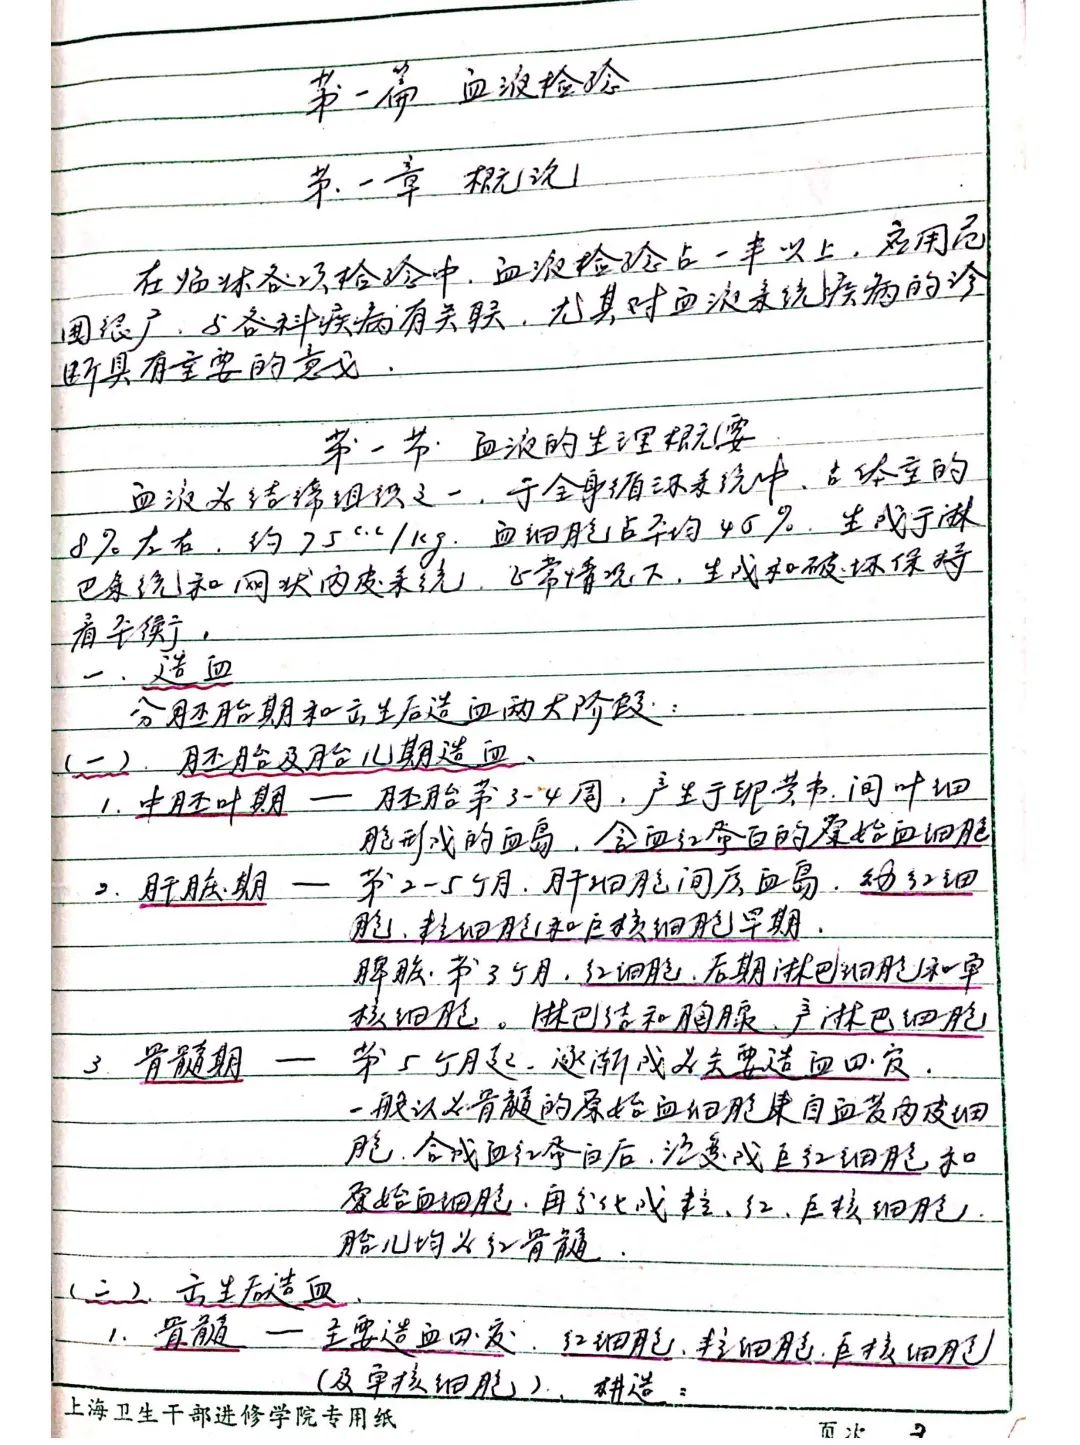 第一篇 血液检验
第一章 概说
在临床各项检验中，血液检验占一半以上，应用范
围很广，与各科疾病有关联，尤其对血液系统疾病的诊
断具有重要的意义．
第一节 血液的生理概要
血液为结缔组织之一，于全身循环系统中，占体重的
8%左右，约75c.c/kg．血细胞占平均45%．生成于淋
巴系统和网状内皮系统，正常情况下，生成和破坏保持
着平衡，
一．造血
分胚胎期和出生后造血两大阶段：
(一)．胚胎及胎儿期造血、
1．中胚叶期 — 胚胎第3-4周，产生于卵黄囊．间叶细
胞形成的血岛，含血红蛋白的原始血细胞
2．肝脏期 — 第2-5个月．肝细胞间质血岛．幼红细
胞、粒细胞和巨核细胞早期．
脾脏第3个月，红细胞．后期淋巴细胞和单
核细胞。淋巴结和胸腺、产淋巴细胞
3 骨髓期 — 第5个月起、逐渐成为主要造血四质．
一般认为骨髓的原始血细胞来自血管内皮细
胞，合成血红蛋白后，演变成巨红细胞和
原始血细胞，再分化成粒、红、巨核细胞．
胎儿均为红骨髓．
(二)．出生后造血．
1．骨髓 — 主要造血四质．红细胞、粒细胞．巨核细胞
(及单核细胞)、构造：
上海卫生干部进修学院专用纸
页次 2